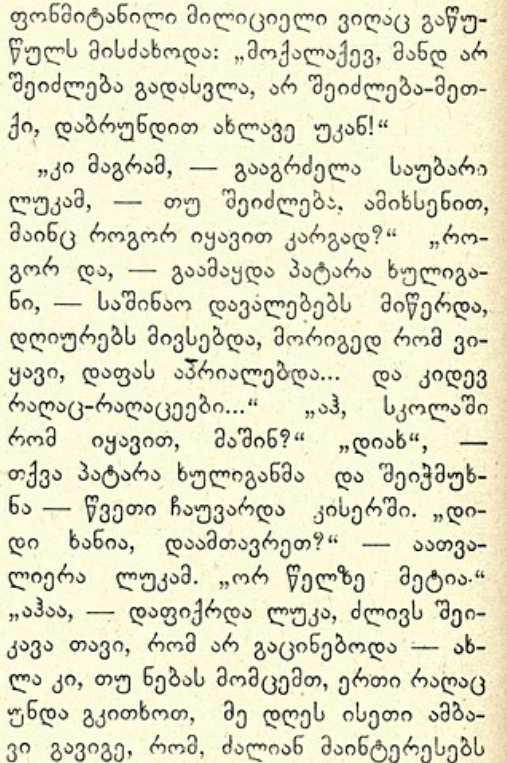 ფონმიტანილი მილიციელი ვიღაც გაწუ-
წულს მისძახოდა: „მოქალაქევ, მანდ არ
შეიძლება გადასვლა, არ შეიძლება-მეთ-
ქი, დაბრუნდით ახლავე უკან!“
„კი მაგრამ, — გააგრძელა საუბარი
ლუკამ, — თუ შეიძლება, ამიხსენით,
მაინც როგორ იყავით კარგად?“ „რო-
გორ და, — გაამაყდა პატარა ხულიგა-
ნი, — საშინაო დავალებებს მიწერდა,
დღიურებს მივსებდა, მორიგედ რომ ვი-
ყავი, დაფას აპრიალებდა... და კიდევ
რაღაც-რაღაცეები...“ „აჰ, სკოლაში
რომ იყავით, მაშინ?“ „დიახ“, —
თქვა პატარა ხულიგანმა და შეიჭმუხ-
ნა — წვეთი ჩაუვარდა კისერში. „დი-
დი ხანია, დაამთავრეთ?“ — აათვა-
ლიერა ლუკამ. „ორ წელზე მეტია.“
„აჰაა, — დაფიქრდა ლუკა, ძლივს შეი-
კავა თავი, რომ არ გაცინებოდა — ახ-
ლა კი, თუ ნებას მომცემთ, ერთი რაღაც
უნდა გკითხოთ, მე დღეს ისეთი ამბა-
ვი გავიგე, რომ, ძალიან მაინტერესებს